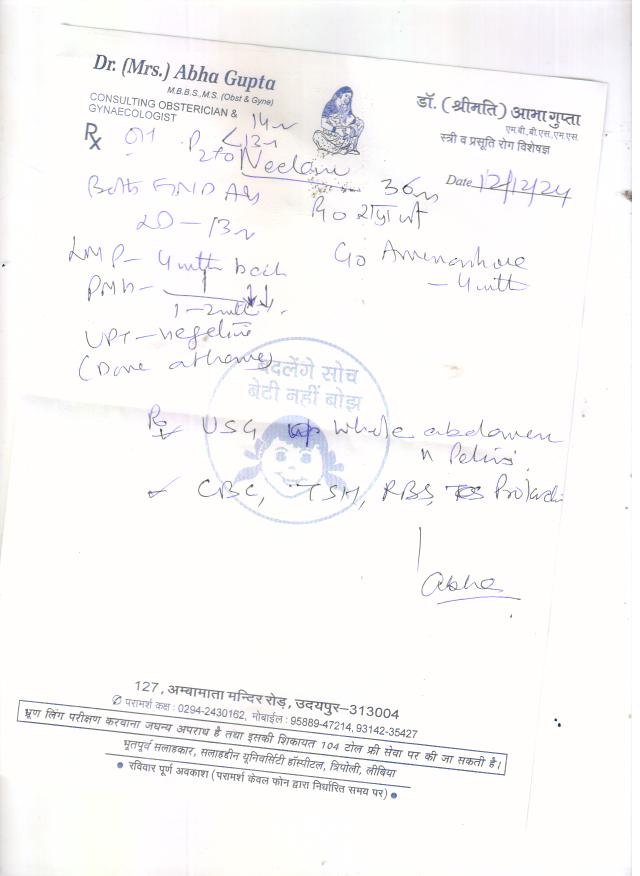 Dr. (Mrs.) Abha Gupta
M.B.B.S.,M.S. (Obst & Gyne)
CONSULTING OBSTERICIAN &
GYNAECOLOGIST
डॉ. ( श्रीमति ) आभा गुप्ता
एम.बी.बी.एस.,एम.एस.
स्त्री व प्रसूति रोग विशेषज्ञ
Rx
P2+0
Neelam
36
Date 12/12/24
Both FTND
20 – 13
LMP – 4 month back
C/o Amenorrhoea
– 4 month
PMH –
1–2
UPT – negative
(Done at home)
बदलेंगे सोच
बेटी नहीं बोझ
USG whole abdomen
n Pelvis
CBC, TSH, RBS,
Abha
127, अम्बामाता मन्दिर रोड़, उदयपुर–313004
परामर्श कक्ष : 0294-2430162, मोबाईल : 95889-47214, 93142-35427
भ्रूण लिंग परीक्षण करवाना जघन्य अपराध है तथा इसकी शिकायत 104 टोल फ्री सेवा पर की जा सकती है।
भूतपूर्व सलाहकार, सलाहद्दीन यूनिवर्सिटी हॉस्पीटल, त्रिपोली, लीबिया
● रविवार पूर्ण अवकाश (परामर्श केवल फोन द्वारा निर्धारित समय पर) ●